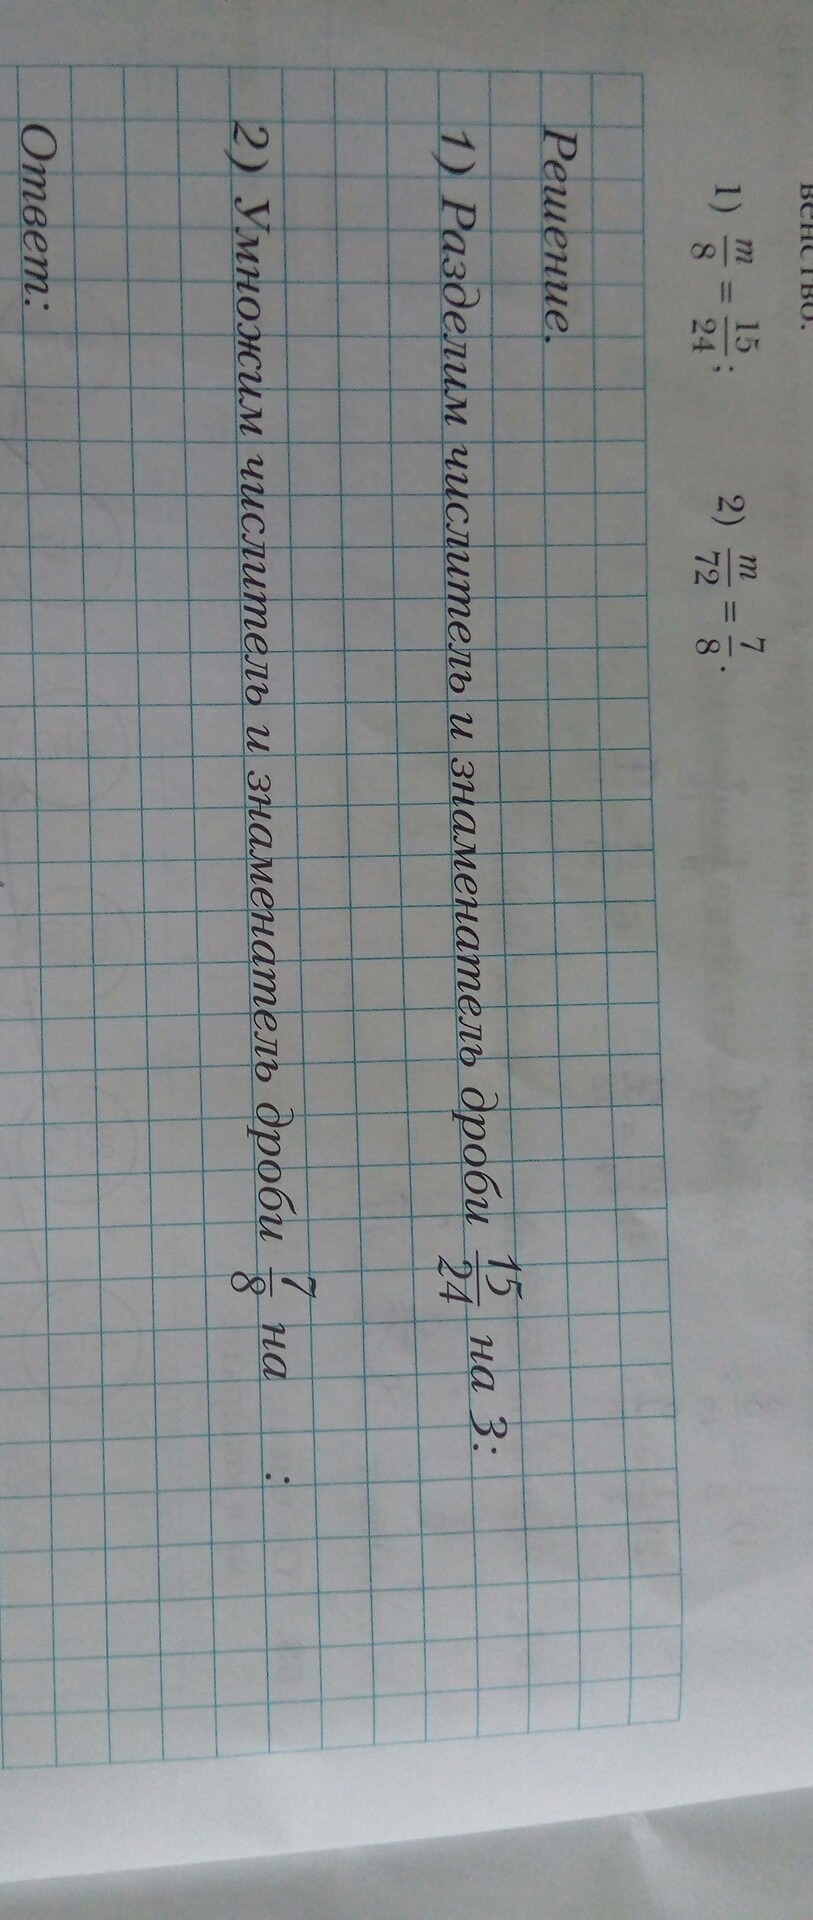 венство.
1) m/8 = 15/24; 2) m/72 = 7/8.
Решение.
1) Разделим числитель и знаменатель дроби 15/24 на 3:
2) Умножим числитель и знаменатель дроби 7/8 на :
Ответ: